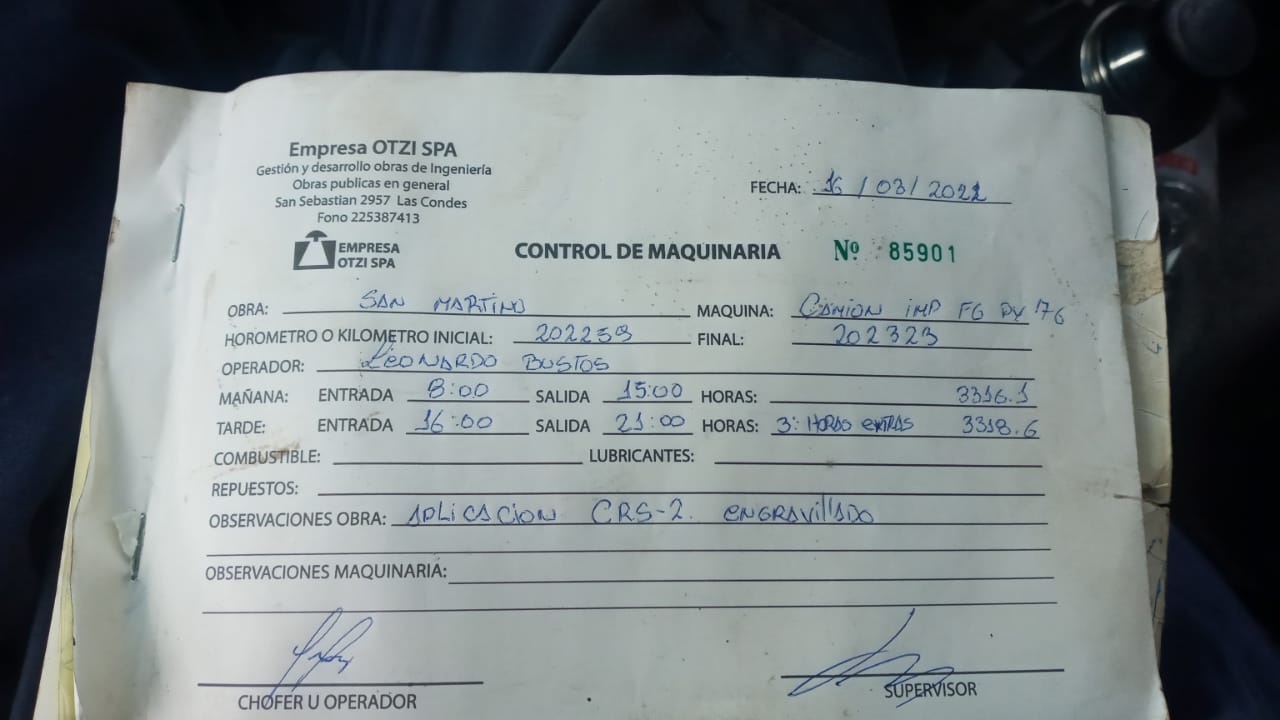 Empresa OTZI SPA
Gestión y desarrollo obras de Ingeniería
Obras publicas en general
San Sebastian 2957 Las Condes
Fono 225387413
FECHA: 16 / 03 / 2022
EMPRESA
OTZI SPA
CONTROL DE MAQUINARIA Nº 85901
OBRA: SAN MARTINO MAQUINA: CAMION IMP FG PX 76
HOROMETRO O KILOMETRO INICIAL: 202259 FINAL: 202323
OPERADOR: LEONARDO BUSTOS
MAÑANA: ENTRADA 8:00 SALIDA 15:00 HORAS: 3316.1
TARDE: ENTRADA 16:00 SALIDA 21:00 HORAS: 3: HORAS EXTRAS 3318.6
COMBUSTIBLE: LUBRICANTES:
REPUESTOS:
OBSERVACIONES OBRA: APLICACION CRS-2. ENGRAVILLADO
OBSERVACIONES MAQUINARIA:
CHOFER U OPERADOR SUPERVISOR